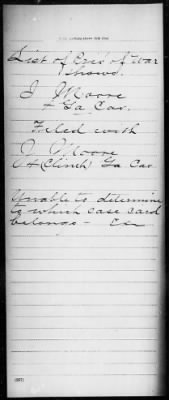 List of Pris of War
Shows.
J Moore
4 Ga Cav.
Filed with
J Moore
4 (Clinch) Ga Cav
Unable to determine
to which case card
belongs -
(887)